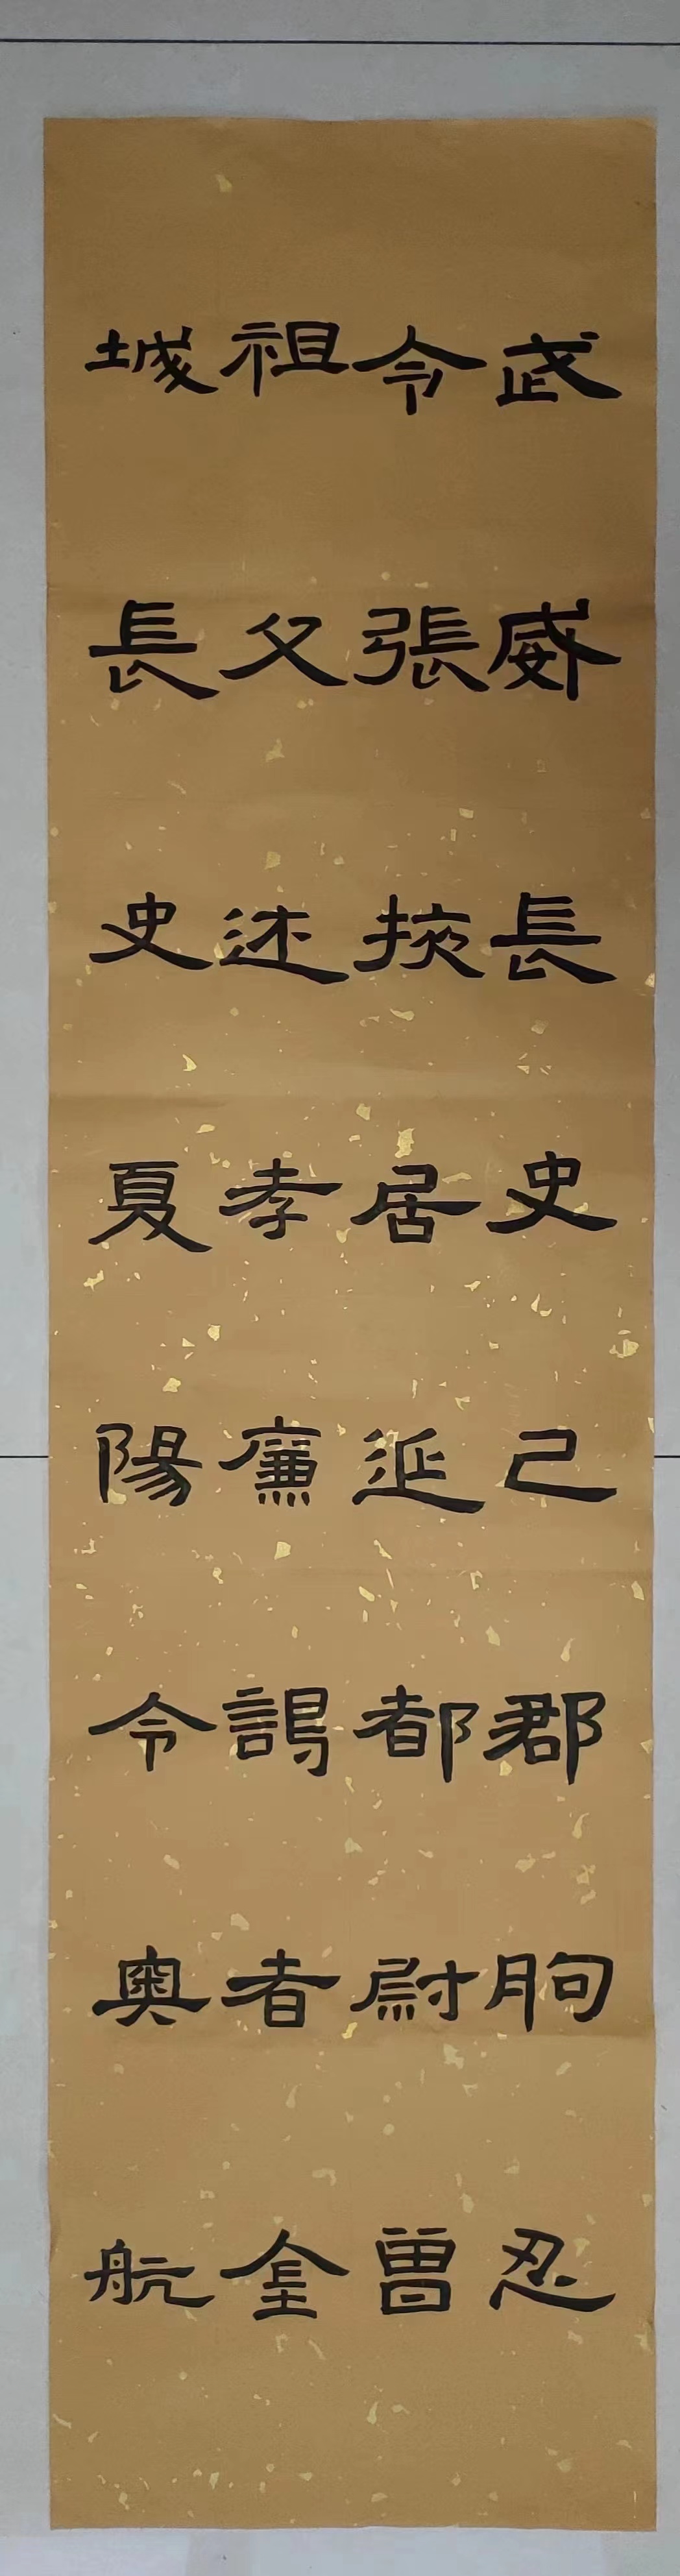 武威長史己郡朐忍
令張掖居延都尉曾
祖父述孝廉謁者金
城長史夏陽令奥航